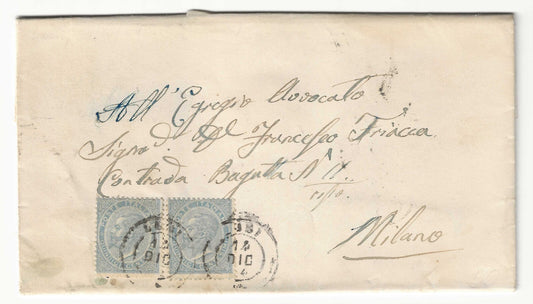 All' Egregio Avvocato
Signor Francesco Triacca
Contrada Bagutta N°
Milano
14
DIC
14
DIC